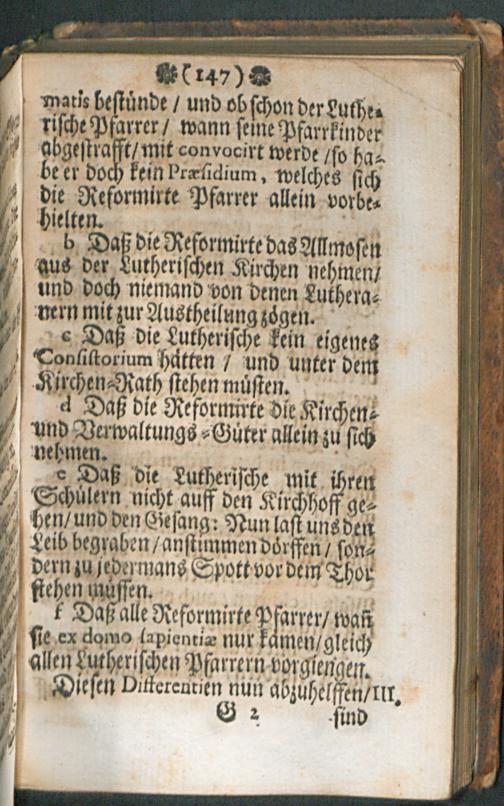 (147)
matis bestünde / und ob schon der Luthe-
rische Pfarrer / wann seine Pfarrkinder
abgestrafft / mit convocirt werde / so ha-
be er doch kein Præsidium, welches sich
die Reformirte Pfarrer allein vorbe-
hielten.
b Daß die Reformirte das Allmosen
aus der Lutherischen Kirchen nehmen /
und doch niemand von denen Luthera-
nern mit zur Austheilung zögen.
c Daß die Lutherische kein eigenes
Consistorium hätten / und unter dem
Kirchen-Rath stehen müsten.
d Daß die Reformirte die Kirchen-
und Verwaltungs-Güter allein zu sich
nehmen.
e Daß die Lutherische mit ihren
Schülern nicht auff den Kirchhoff ge-
hen / und den Gesang: Nun last uns den
Leib begraben / anstimmen dörffen / son-
dern zu jedermans Spott vor dem Thor
stehen müssen.
f Daß alle Reformirte Pfarrer / wañ
sie ex domo sapientiæ nur kämen / gleich
allen Lutherischen Pfarrern vorgiengen.
Diesen Differentien nun abzuhelffen / III.
G 2 sind